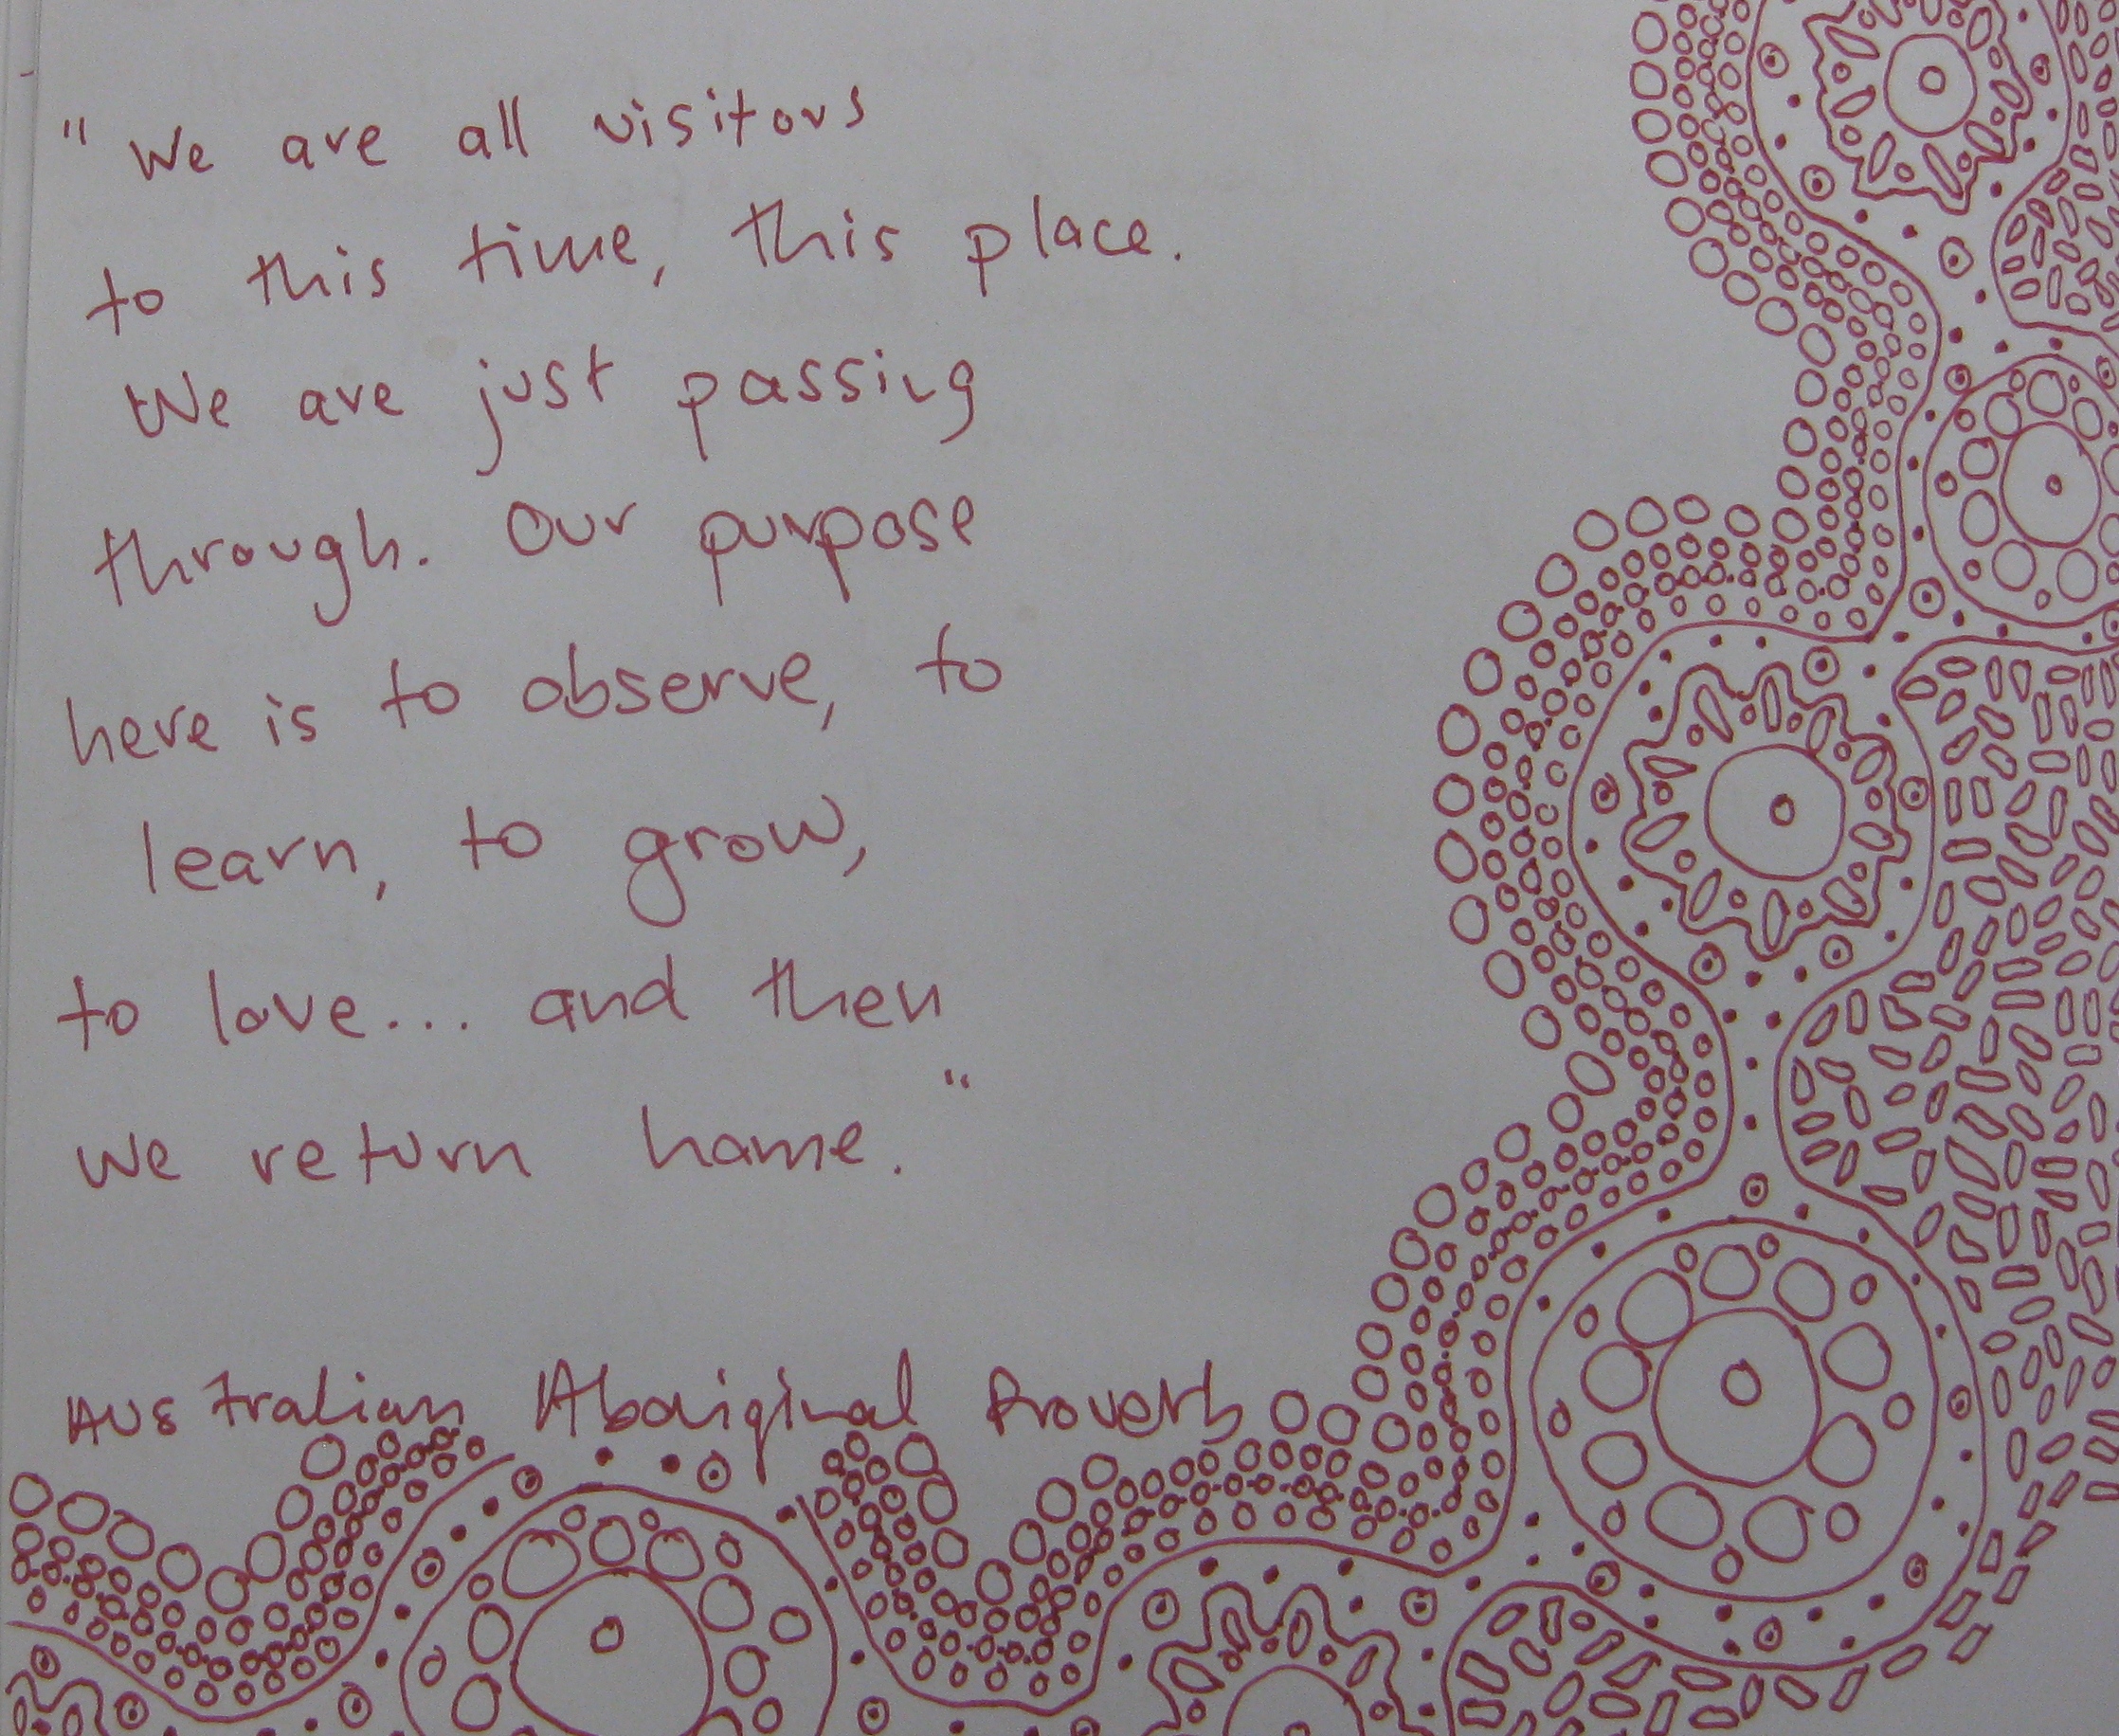 "We are all visitors
to this time, this place.
We are just passing
through. Our purpose
here is to observe, to
learn, to grow,
to love... and then
we return home."
Australian Aboriginal Proverb